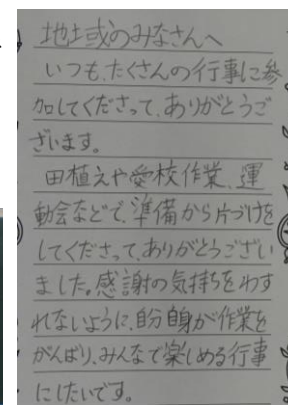 地域のみなさんへ
いつも、たくさんの行事に参
加してくださって、ありがとうご
ざいます。
田植えや愛校作業、運
動会などで、準備から片づけを
してくださって、ありがとうござい
ました。感謝の気持ちをわす
れないように、自分自身が作業を
がんばり、みんなで楽しめる行事
にしたいです。